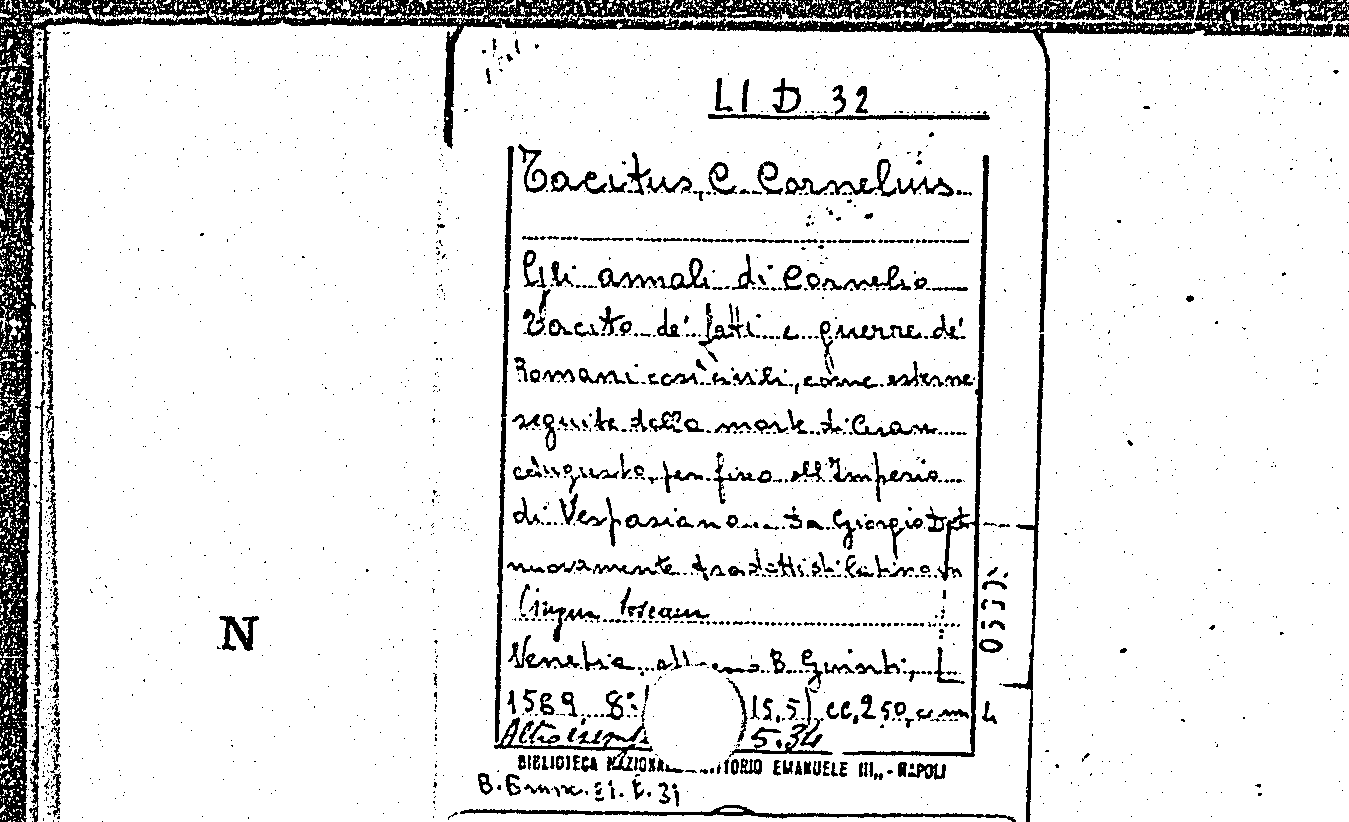 LI D 32
Tacitus, C. Cornelius
Gli annali di Cornelio
Tacito de' fatti e guerre de'
Romani così civili, come esterne
seguite dalla morte di Cesare
Augusto, per fino all'Imperio
di Vespasiano... da Giorgio
nuovamente tradotti di latino in
lingua toscana
Venetia, B. Giunti,
1589, 8° 15,5) cc, 250, cm
Altro 5.34
BIBLIOTECA VITTORIO EMANUELE III,, - NAPOLI
N